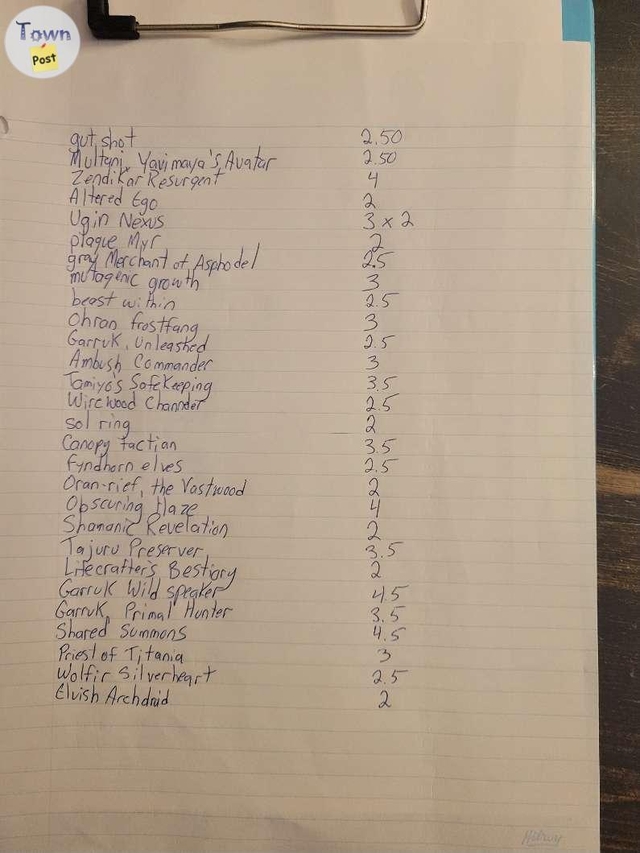 Town
Post
gut shot 2.50
Multani, Yavimaya's Avatar 2.50
Zendikar Resurgent 4
Altered Ego 2
Ugin Nexus 3 x 2
plague Myr 2
gray Merchant of Asphodel 2.5
mutagenic growth 3
beast within 2.5
Ohran frostfang 3
Garruk, Unleashed 2.5
Ambush Commander 3
Tamiyo's Safekeeping 3.5
Wirewood Channder 2.5
sol ring 2
Canopy tactian 3.5
fyndhorn elves 2.5
Oran-rief, the Vastwood 2
Obscuring Haze 4
Shamanic Revelation 2
Tajuru Preserver 3.5
Lifecrafter's Bestiary 2
Garruk Wild speaker 4.5
Garruk, Primal Hunter 3.5
Shared Summons 4.5
Priest of Titania 3
Wolfir Silverheart 2.5
Elvish Archdruid 2